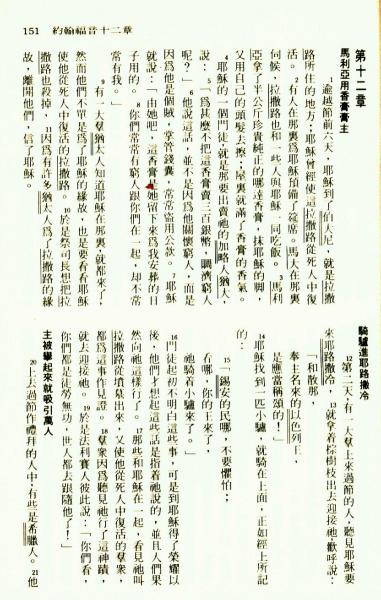 151 約翰福音十二章
第十二章
馬利亞用香膏膏主
1逾越節前六天，耶穌到了伯大尼，就是拉撒
路所住的地方，耶穌曾經使這拉撒路從死人中復
活。2有人在那裏爲耶穌預備了筵席。馬大在那裏
伺候，拉撒路也和一些人與耶穌一同吃飯。3馬利
亞拿了半公斤珍貴純正的哪達香膏，抹耶穌的脚，
又用自己的頭髮去擦；屋裏就滿了香膏的香氣。
4耶穌的一個門徒，就是那要出賣祂的加略人猶大，
說：5「爲甚麼不把這香膏賣三百銀幣，賙濟窮人
呢？」6他說這話，並不因爲他關懷窮人，而是
因爲他是個賊，掌管錢囊，常常盜用公款。7耶穌
就說：「由她吧，這香膏是她留下來爲我安葬的日
子用的。8你們常常有窮人跟你們在一起，却不常
常有我。」
9有一大羣猶太人知道耶穌在那裏，就都來了，
然而他們不單是爲了耶穌的緣故，也是要看看耶穌
使他從死人中復活的拉撒路。10於是祭司長想把拉
撒路也殺掉，11因爲有許多猶太人爲了拉撒路的緣
故，離開他們，信了耶穌。
騎驢進耶路撒冷
12第二天，有一大羣上來過節的人，聽見耶穌要
來耶路撒冷，13就拿着棕樹枝出去迎接祂，歡呼說：
「和散那，
奉主名來的以色列王，
是應當稱頌的！」
14耶穌找到一匹小驢，就騎在上面，正如經上所記
的：
15「錫安的民哪，不要懼怕；
看哪，你的王來了，
祂騎着小驢來了。」
16門徒起初不明白這些事，可是到耶穌得了榮耀以
後，他們才想起這些話是指着祂說的，並且人們果
然向祂這樣行了。17那些和耶穌在一起，看見祂叫
拉撒路從墳墓出來，又使他從死人中復活的羣衆，
都爲這事作見證。18羣衆因爲聽見祂行了這神蹟，
就去迎接祂。19於是法利賽人彼此說：「你們看，
你們都是徒勞無功，世人都去跟隨他了！」
主被舉起來就吸引萬人
20上去過節作禮拜的人中，有些是希臘人。21他